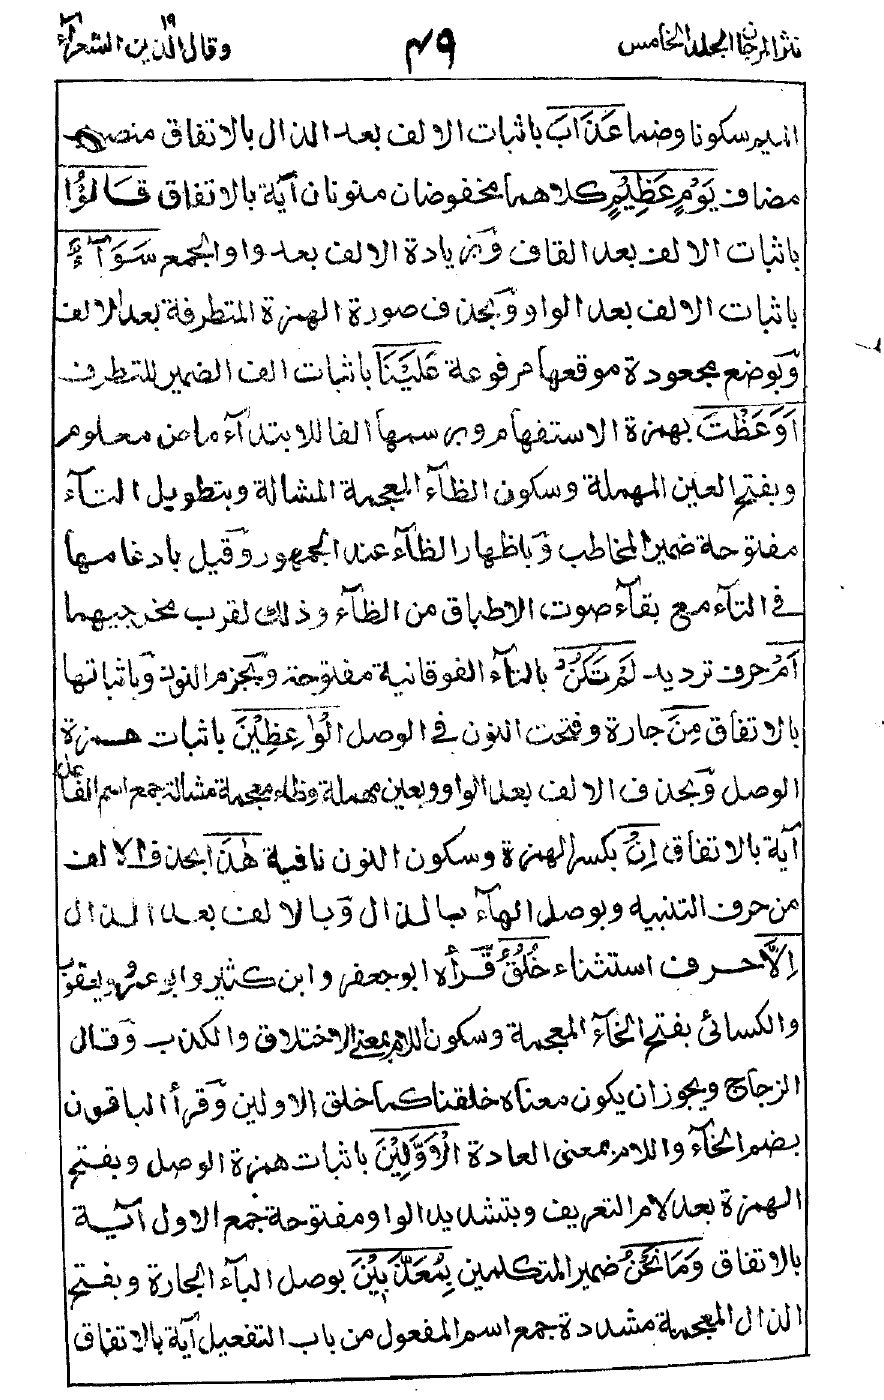 نثر المرجان المجلد الخامس
٤٩
وقال الذين ١٩ الشعراء
الميم سكونا وضما عَذَابَ باثبات الالف بعد الذال بالاتفاق منصوب
مضاف يَوْمٍ عَظِيْمٍ كلاهما مخفوضان منونان آية بالاتفاق قَالُوْا
باثبات الالف بعد القاف وَبزيادة الالف بعد واو الجمع سَوَآءٌ
باثبات الالف بعد الواو وَّبحذف صورة الهمزة المتطرفة بعد الالف
وَّبوضع مجعودة موقعها مرفوعة عَلَيْنَا باثبات الف الضمير للتطرف
اَوَعَظْتَ بهمزة الاستفهام وبرسمها الفا للابتدآء ماض معلوم
وبفتح العين المهملة وسكون الظآء المعجمة المشالة وبتطويل التآء
مفتوحة ضمير المخاطب وَباظهار الظآء عند الجمهور وَقيل بادغامها
في التآء مع بقآء صوت الاطباق من الظآء وذلك لقرب مخرجيهما
اَمْ حرف ترديد لَمْ تَكُنْ بالتآء الفوقانية مفتوحة وَبجزم النون وَباثباتها
بالاتفاق مِنَ جارة وفتحت النون في الوصل الْوَاعِظِيْنَ باثبات همزة
الوصل وَّبحذف الالف بعد الواو وبعين مهملة وظاء معجمة مشالة جمع اسم الفاعل
آية بالاتفاق اِنْ بكسر الهمزة وسكون النون نافية هٰذَا بحذف الالف
من حرف التنبيه وبوصل الهآء بالذال وَبالالف بعد الذال
اِلَّا حرف استثناء خُلُقُ قَرأه ابو جعفر وابن كثير وابو عمرو ويعقوب
والكسائي بفتح الخآء المعجمة وسكون اللام بمعنى الاختلاق والكذب وَقال
الزجاج ويجوز ان يكون معناه خلقنا كما خلق الاولين وَّقرأ الباقون
بضم الخآء واللام بمعنى العادة الْاَوَّلِيْنَ باثبات همزة الوصل وبفتح
الهمزة بعد لام التعريف وبتشديد الواو مفتوحة جمع الاول آية
بالاتفاق وَمَا نَحْنُ ضمير المتكلمين بِمُعَذَّبِيْنَ بوصل البآء الجارة وبفتح
الذال المعجمة مشددة جمع اسم المفعول من باب التفعيل آية بالاتفاق